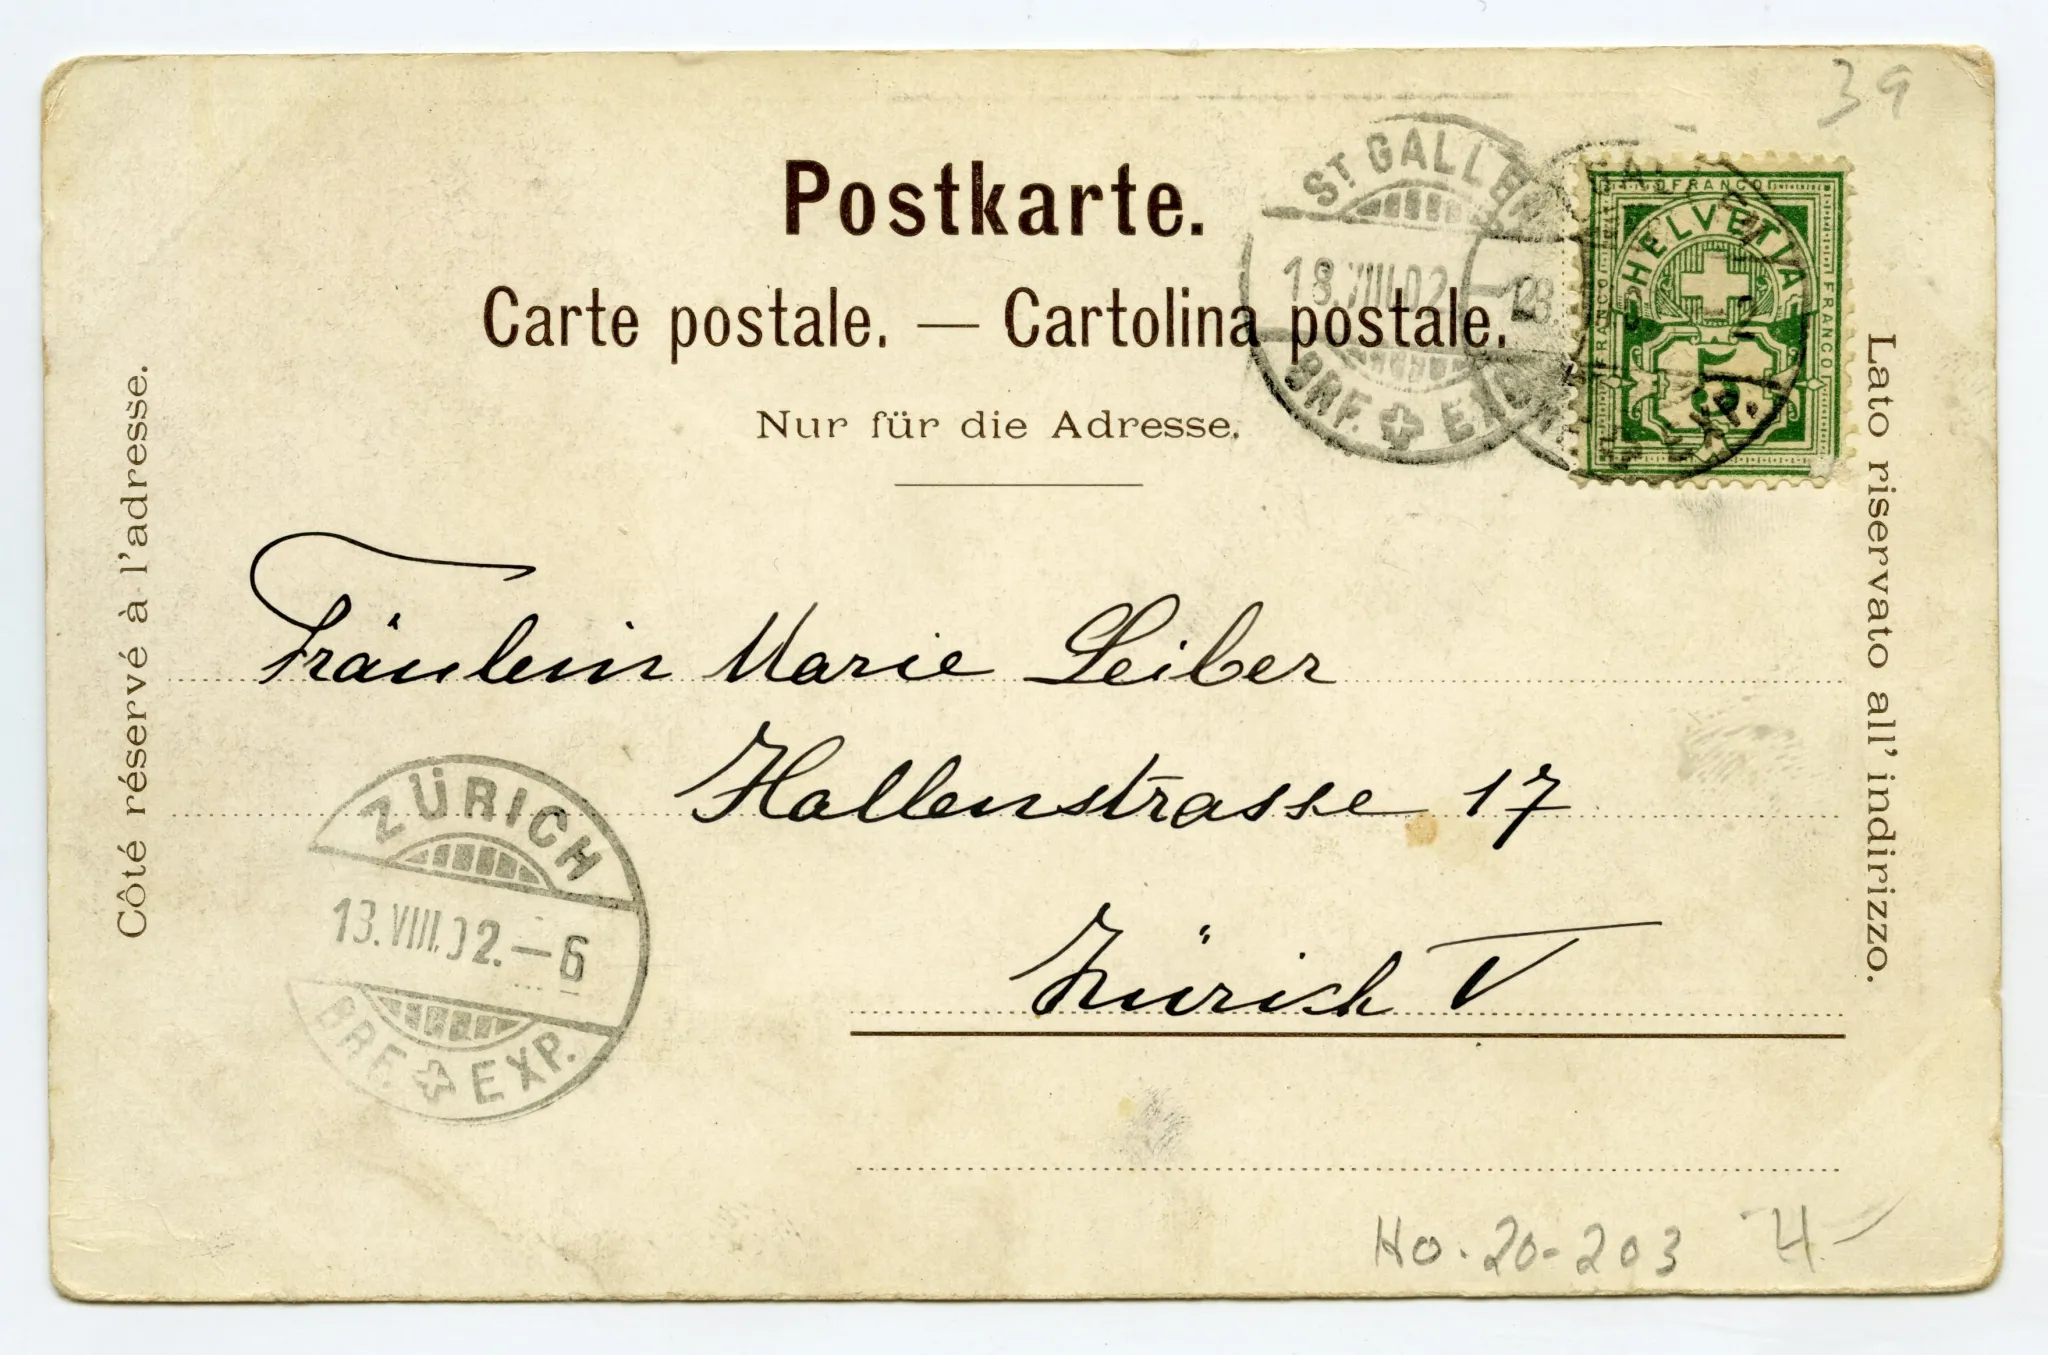 39
Postkarte.
Carte postale. — Cartolina postale.
Nur für die Adresse.
ST GALLEN
18.VIII.02
BRF. EXP.
FRANCO
HELVETIA
FRANCO
FRANCO
5
EXP.
Côté réservé à l'adresse.
Lato riservato all' indirizzo.
Fräulein Marie Leiber
Hallenstrasse 17
Zürich V
ZÜRICH
13.VIII.02.–6
BRF. EXP.
Ho. 20-203 H-